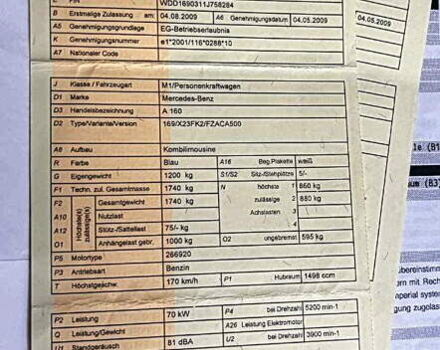 E FIN WDD1690311J758284
B Erstmalige Zulassung am: 04.08.2009 A6 Genehmigungsdatum 04.05.2009 04.05.2009
A5 Genehmigungsgrundlage EG-Betriebserlaubnis
K Genehmigungsnummer e1*2001/116*0288*10
A7 Nationaler Code
J Klasse / Fahrzeugart M1/Personenkraftwagen
D1 Marke Mercedes-Benz
D3 Handelsbezeichnung A 160
D2 Type/Variante/Version 169/X23FK2/FZACA500
A8 Aufbau Kombilimousine
R Farbe Blau A16 Beg.Plakette weiß
G Eigengewicht 1200 kg S1/S2 Sitz-/Stehplätze 5/-
F1 Techn. zul. Gesamtmasse 1740 kg N höchste 1 860 kg
F2 Höchste(s) zulässige(s) Gesamtgewicht 1740 kg zulässige 2 880 kg
A10 Nutzlast Achslasten 3
A12 Stütz-/Sattellast 75/- kg 4
O1 Anhängelast gebr. 1000 kg O2 ungebremst 595 kg
P5 Motortype 266920
P3 Antriebsart Benzin
T Höchstgeschw. 170 km/h P1 Hubraum 1498 ccm
P2 Leistung 70 kW P4 bei Drehzahl 5200 min-1
Q Leistung/Gewicht A26 Leistung Elektromotor
U1 Standgeräusch 81 dBA U2 bei Drehzahl 3900 min-1
le (B1
um (B3)
übereinstim
orm mit Rech
mperial system
ügung zugelass